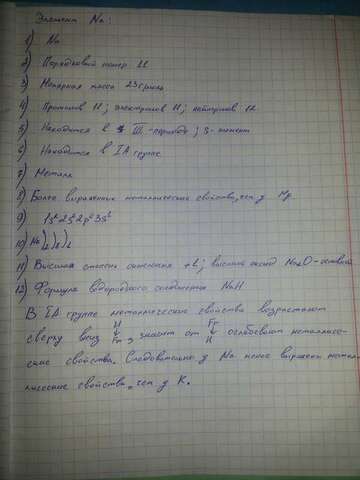 Элемент Na:
1) Na
2) Порядковый номер 11
3) Молярная масса 23 г/моль
4) Протонов 11; электронов 11; нейтронов 12
5) Находится в III-периоде; s-элемент
6) Находится в IA группе
7) Металл
8) Более выражены металлические свойства, чем у Mg
9) 1s² 2s² 2p⁶ 3s¹
10) Na ) ) )
2 8 1
11) Высшая степень окисления +1; высший оксид Na₂O-основный
12) Формула водородного соединения NaH
В IA группе металлические свойства возрастают
сверху вниз H ↓ Fr, значит от Fr ↓ H ослабевают металличе-
ские свойства. Следовательно у Na менее выражены метал-
лические свойства, чем у K.